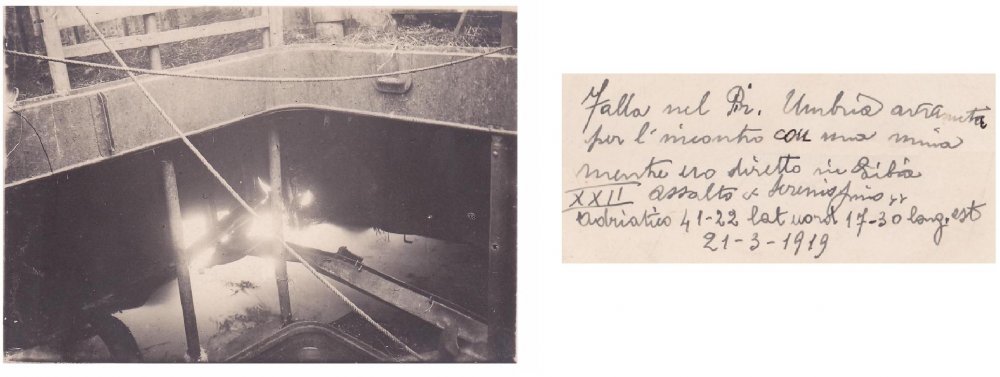 Falla nel Pir. Umbria avvenuta
per l'incontro con una mina
mentre ero diretto in Libia
XXII assalto "Serenissimo"
adriatico 41-22 lat nord 17-30 long. est
21-3-1919